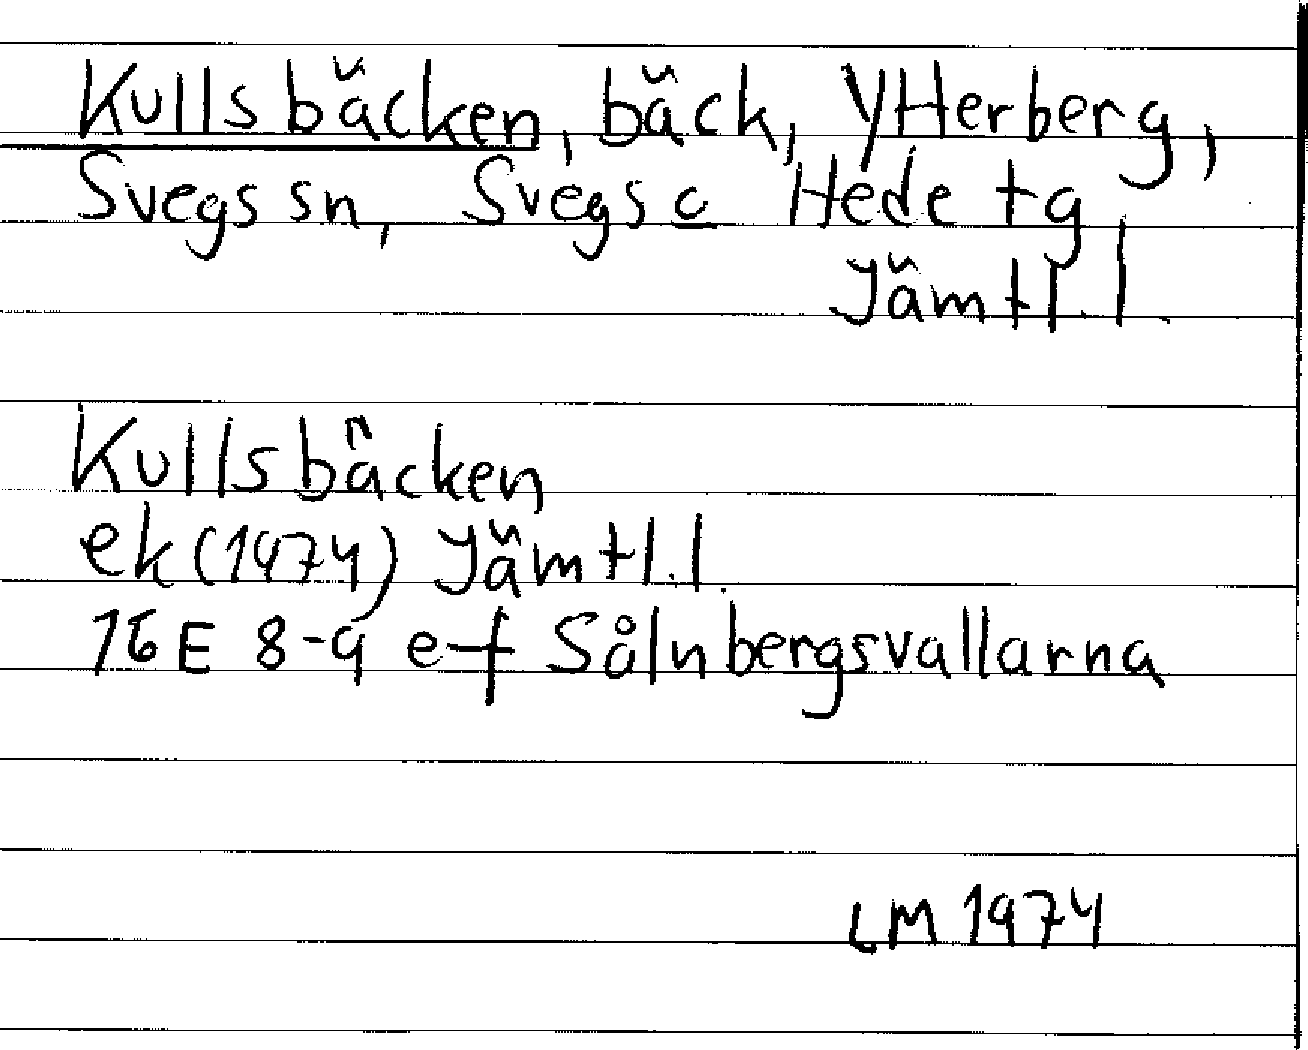 Kullsbäcken, bäck, YHerberg,
Svegs sn, Svegs o Hede tg
Jämtl. l.
Kullsbäcken
ek (1974) Jämtl. l.
16 E 8-9 e-f Sålnbergsvallarna
LM 1974